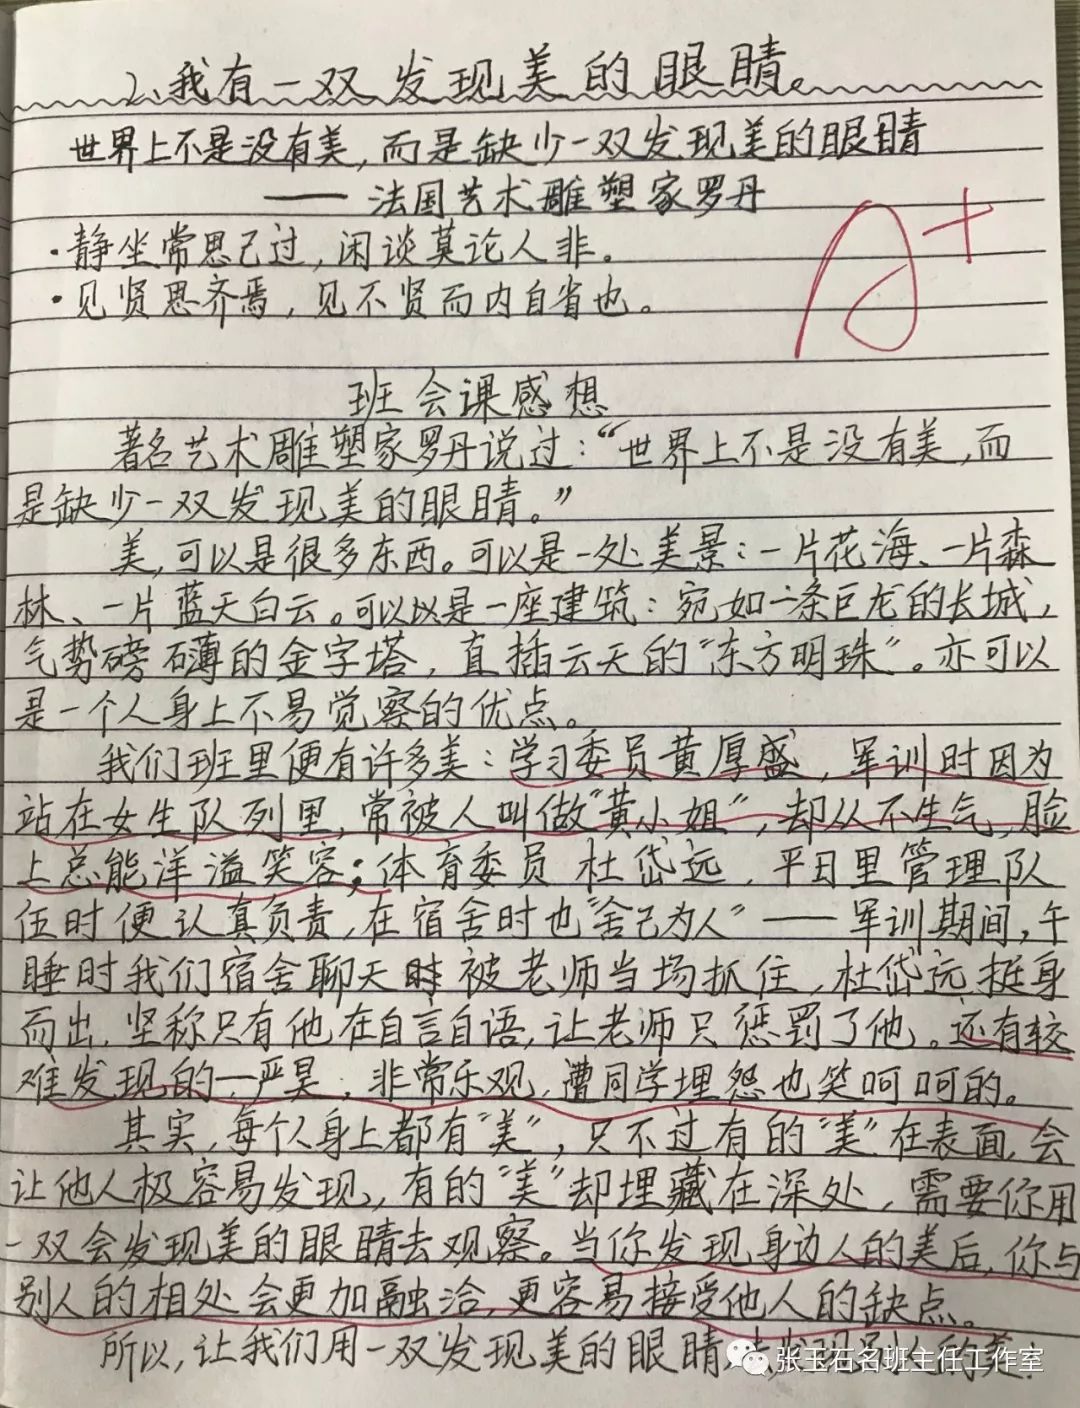 2、我有一双发现美的眼睛。
世界上不是没有美，而是缺少一双发现美的眼睛
——法国艺术雕塑家罗丹
A+
·静坐常思己过，闲谈莫论人非。
·见贤思齐焉，见不贤而内自省也。
班会课感想
著名艺术雕塑家罗丹说过：“世界上不是没有美，而
是缺少一双发现美的眼睛。”
美，可以是很多东西。可以是一处美景：一片花海、一片森
林、一片蓝天白云。可以以是一座建筑：宛如一条巨龙的长城，
气势磅礴的金字塔，直插云天的“东方明珠”。亦可以
是一个人身上不易觉察的优点。
我们班里便有许多美：学习委员黄厚盛，军训时因为
站在女生队列里，常被人叫做“黄小姐”，却从不生气，脸
上总能洋溢笑容；体育委员杜岱远，平日里管理队
伍时便认真负责，在宿舍时也“舍己为人”——军训期间，午
睡时我们宿舍聊天时被老师当场抓住，杜岱远挺身
而出，坚称只有他在自言自语，让老师只惩罚了他。还有较
难发现的—严昊，非常乐观，遭同学埋怨也笑呵呵的。
其实，每个人身上都有“美”，只不过有的“美”在表面，会
让他人极容易发现，有的“美”却埋藏在深处，需要你用
一双会发现美的眼睛去观察。当你发现身边人的美后，你与
别人的相处会更加融洽，更容易接受他人的缺点。
所以，让我们用一双发现美的眼睛去发现别人的美！
张玉石名班主任工作室